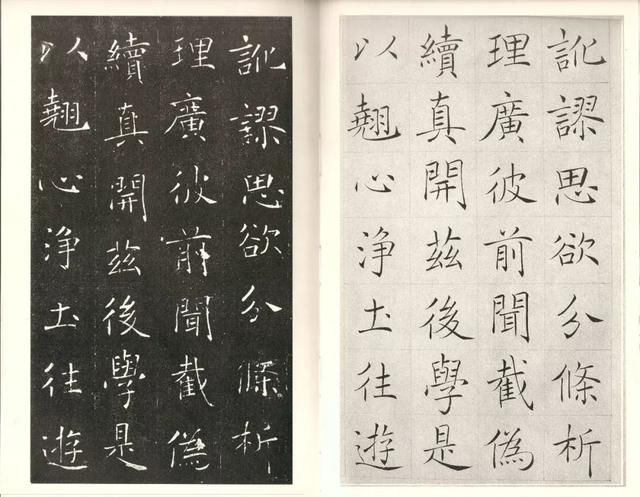 訛謬思欲分條析
理廣彼前聞截偽
續真開茲後學是
以翹心淨土往遊
訛謬思欲分條析
理廣彼前聞截偽
續真開茲後學是
以翹心淨土往遊